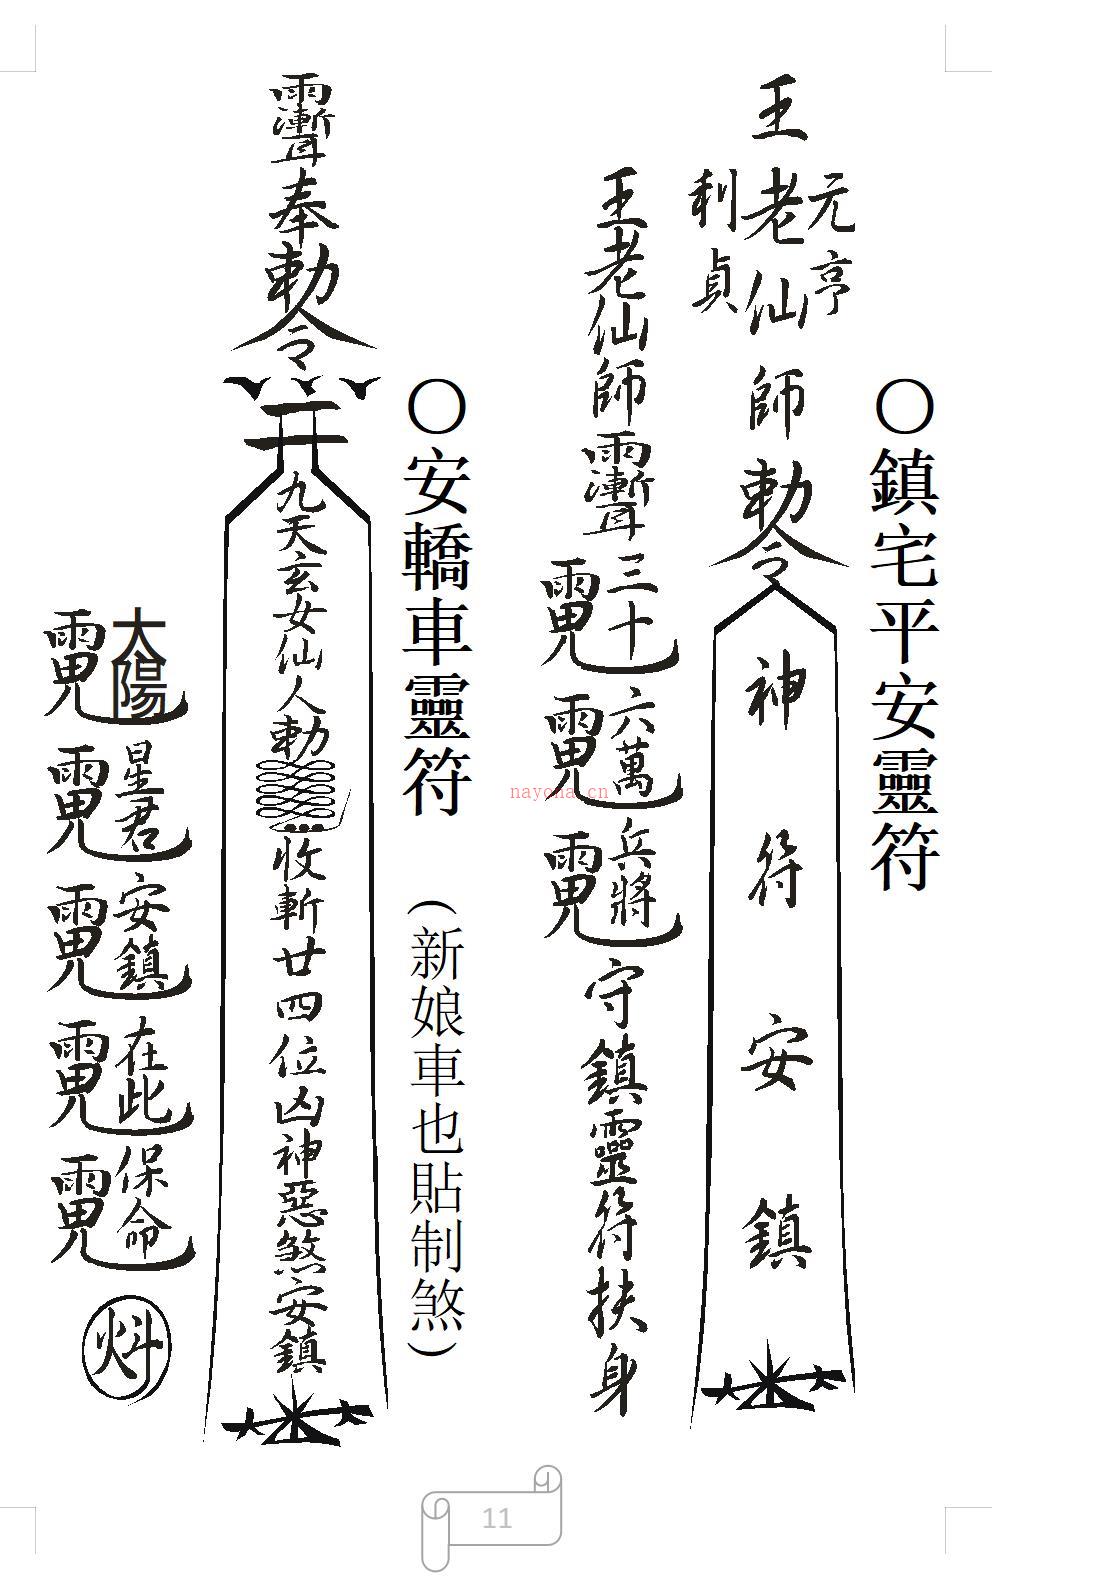 ○鎮宅平安靈符
元亨
王老仙師勅令
利貞
神符安鎮
王老仙師
三十六萬兵將
守鎮靈符扶身
○安轎車靈符
(新娘車也貼制煞)
奉勅令
九天玄女仙人勅
收斬廿四位凶神惡煞安鎮
太陽星君安鎮在此保命
nayona.cn
11